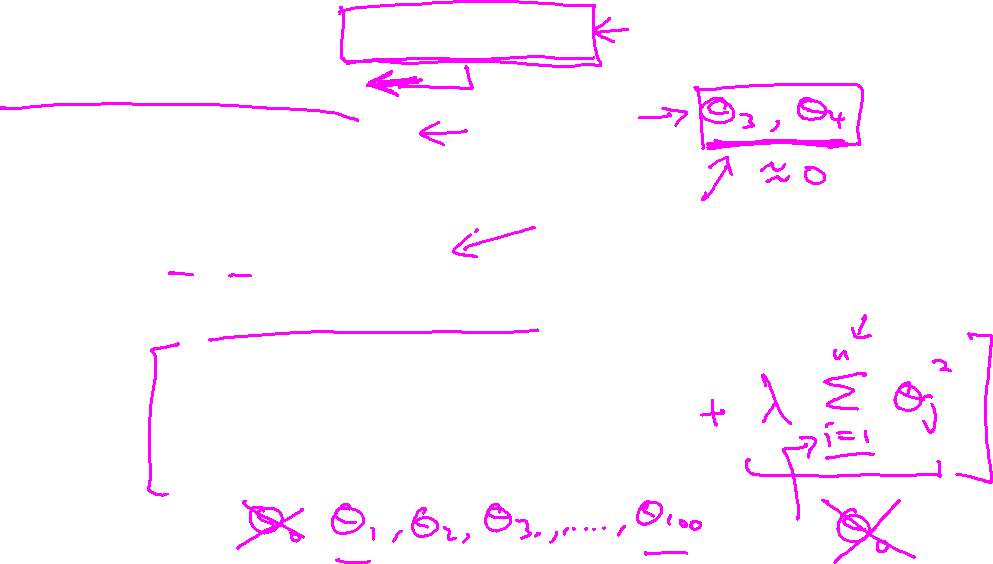 Θ₃, Θ₄
≈ 0
+ λ Σ_{i=1}^{n} Θ_j²
Θ₀ Θ₁, Θ₂, Θ₃, ....., Θ₁₀₀ Θ₀